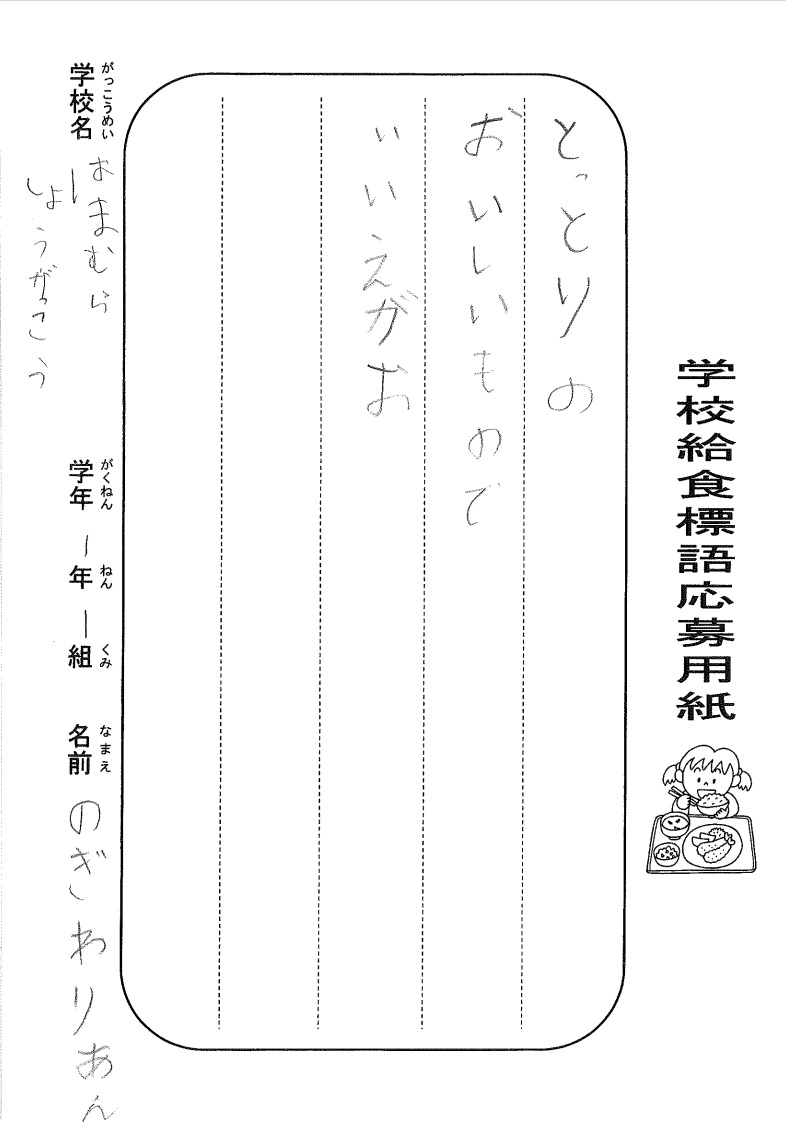 学校給食標語応募用紙
とっとりの
おいしいもので
いいえがお
学校名
がっこうめい
はまむら
しょうがっこう
学年 一年 一組
がくねん ねん くみ
名前
なまえ
のぎわりあん